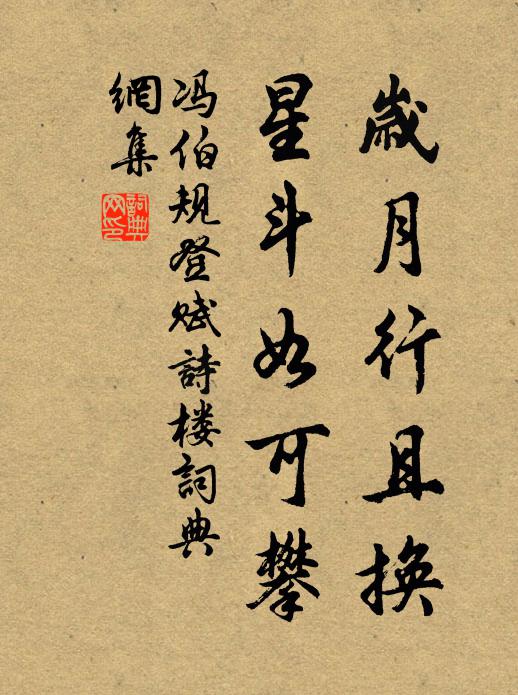 歲月行且換
星斗如可攀
冯伯规登赋詩楼詞典
網集
詞典
网印